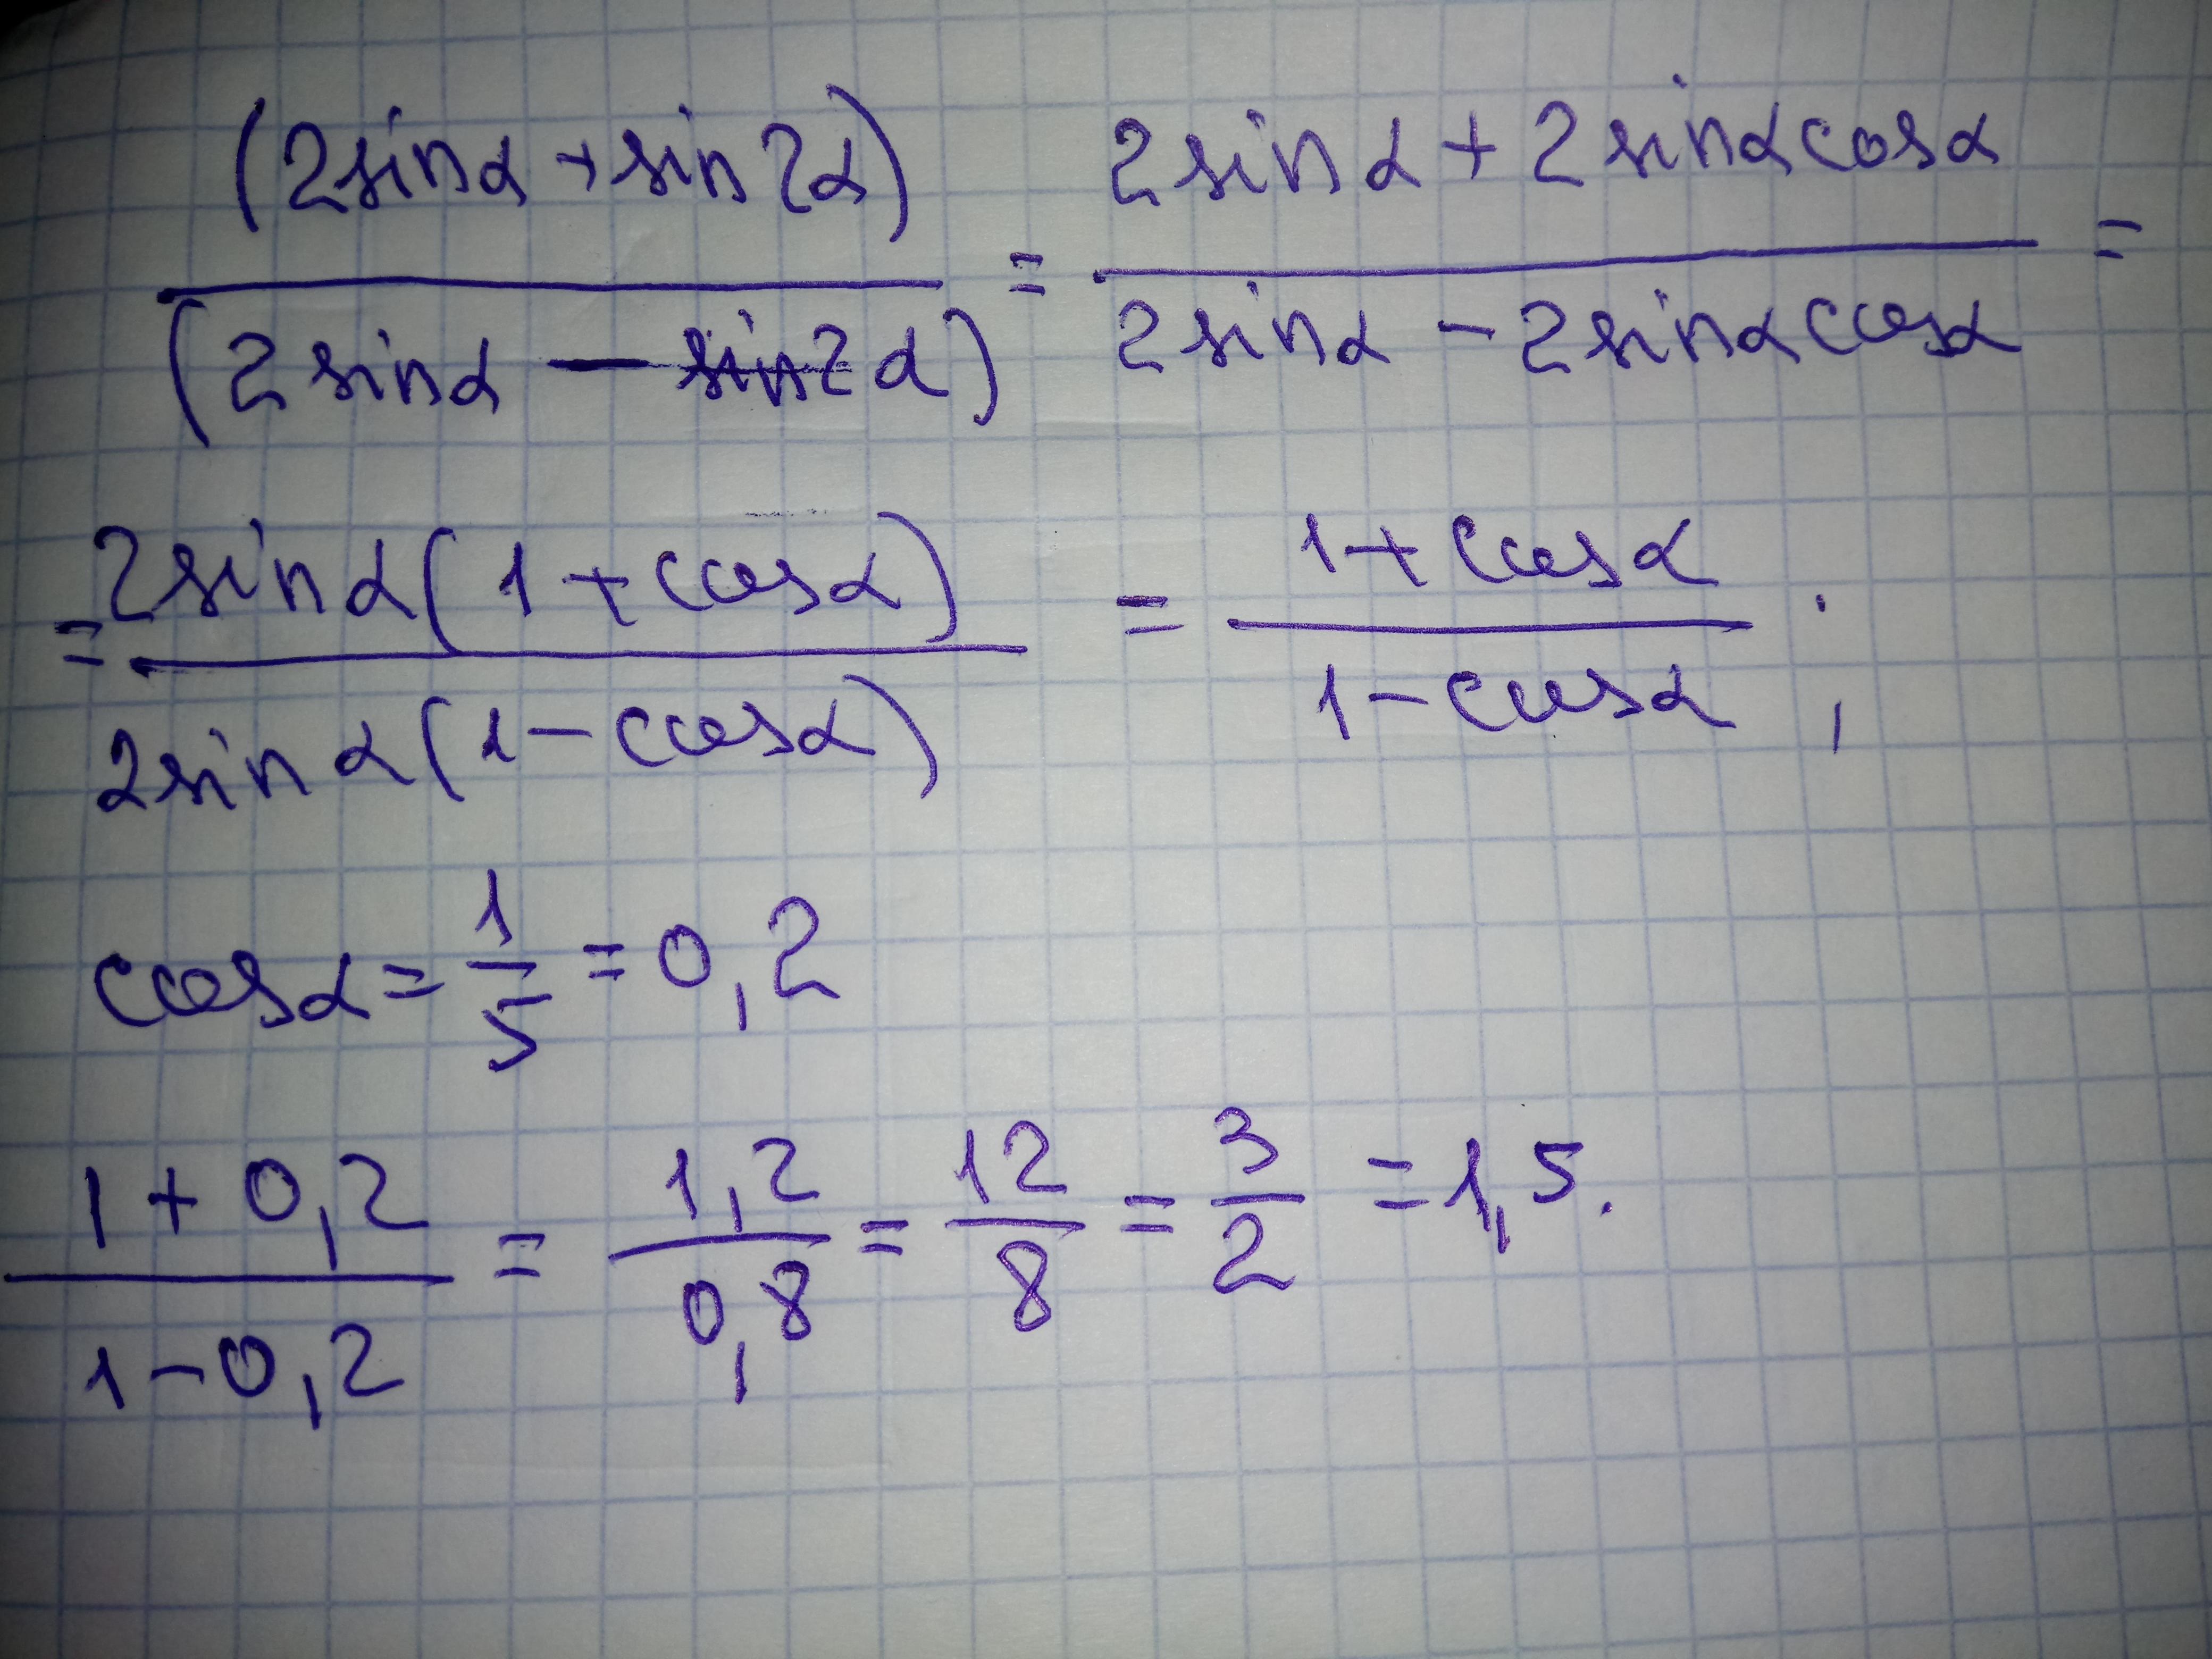 (2sinα + sin2α) / (2sinα − sin2α) = (2sinα + 2sinαcosα) / (2sinα − 2sinαcosα) =
= 2sinα(1 + cosα) / 2sinα(1 − cosα) = (1 + cosα) / (1 − cosα) ;
cosα = 1/5 = 0,2
(1 + 0,2) / (1 − 0,2) = 1,2/0,8 = 12/8 = 3/2 = 1,5.